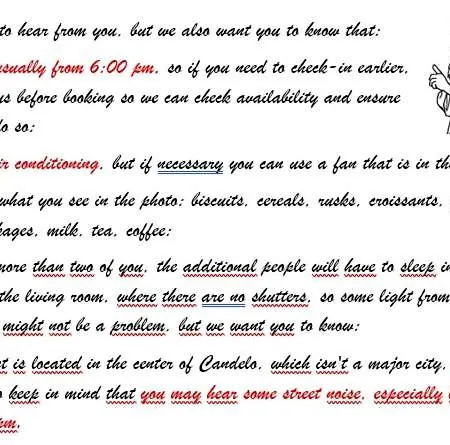 to hear from you, but we also want you to know that:
usually from 6:00 pm, so if you need to check-in earlier,
us before booking so we can check availability and ensure
do so:
air conditioning, but if necessary you can use a fan that is in th
what you see in the photo: biscuits, cereals, rusks, croissants,
kages, milk, tea, coffee;
more than two of you, the additional people will have to sleep in
the living room, where there are no shutters, so some light from
might not be a problem, but we want you to know;
t is located in the center of Candelo, which isn't a major city,
keep in mind that you may hear some street noise, especially
pm.